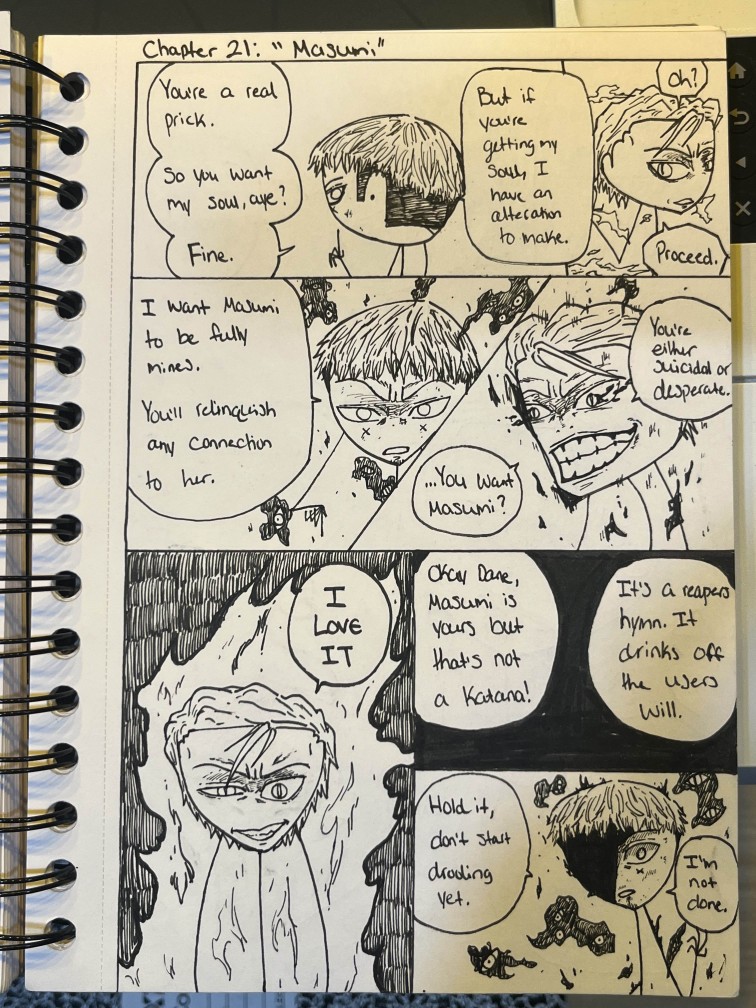 Chapter 21: "Masumi"
You're a real
prick.
So you want
my soul, aye?
Fine.
But if
you're
getting my
Soul, I
have an
alteration
to make.
Oh?
Proceed.
I want Masumi
to be fully
mines.
You'll relinquish
any connection
to her.
...You want
Masumi?
You're
either
suicidal or
desperate.
I
LOVE
IT
Okay Dane,
Masumi is
yours but
that's not
a Katana!
It's a reapers
hymn. It
drinks off
the users
Will.
Hold it,
don't start
drooling
yet.
I'm
not
done.